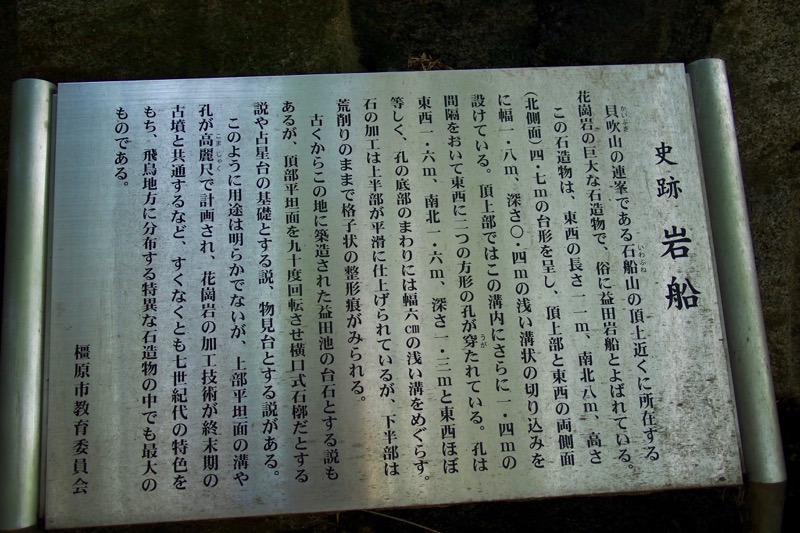 史跡 岩船
貝吹山の連峯である石船山の頂上近くに所在する
花崗岩の巨大な石造物で、俗に益田岩船とよばれている。
この石造物は、東西の長さ一一m、南北八m、高さ
(北側面)四・七mの台形を呈し、頂上部と東西の両側面
に幅一・八m、深さ〇・四mの浅い溝状の切り込みを
設けている。頂上部ではこの溝内にさらに一・四mの
間隔をおいて東西に二つの方形の孔が穿たれている。孔は
東西一・六m、南北一・六m、深さ一・三mと東西ほぼ
等しく、孔の底部のまわりには幅六㎝の浅い溝をめぐらす。
石の加工は上半部が平滑に仕上げられているが、下半部は
荒削りのままで格子状の整形痕がみられる。
古くからこの地に築造された益田池の台石とする説も
あるが、頂部平坦面を九十度回転させ横口式石槨だとする
説や占星台の基礎とする説、物見台とする説がある。
このように用途は明らかでないが、上部平坦面の溝や
孔が高麗尺で計画され、花崗岩の加工技術が終末期の
古墳と共通するなど、すくなくとも七世紀代の特色を
もち、飛鳥地方に分布する特異な石造物の中でも最大の
ものである。
橿原市教育委員会